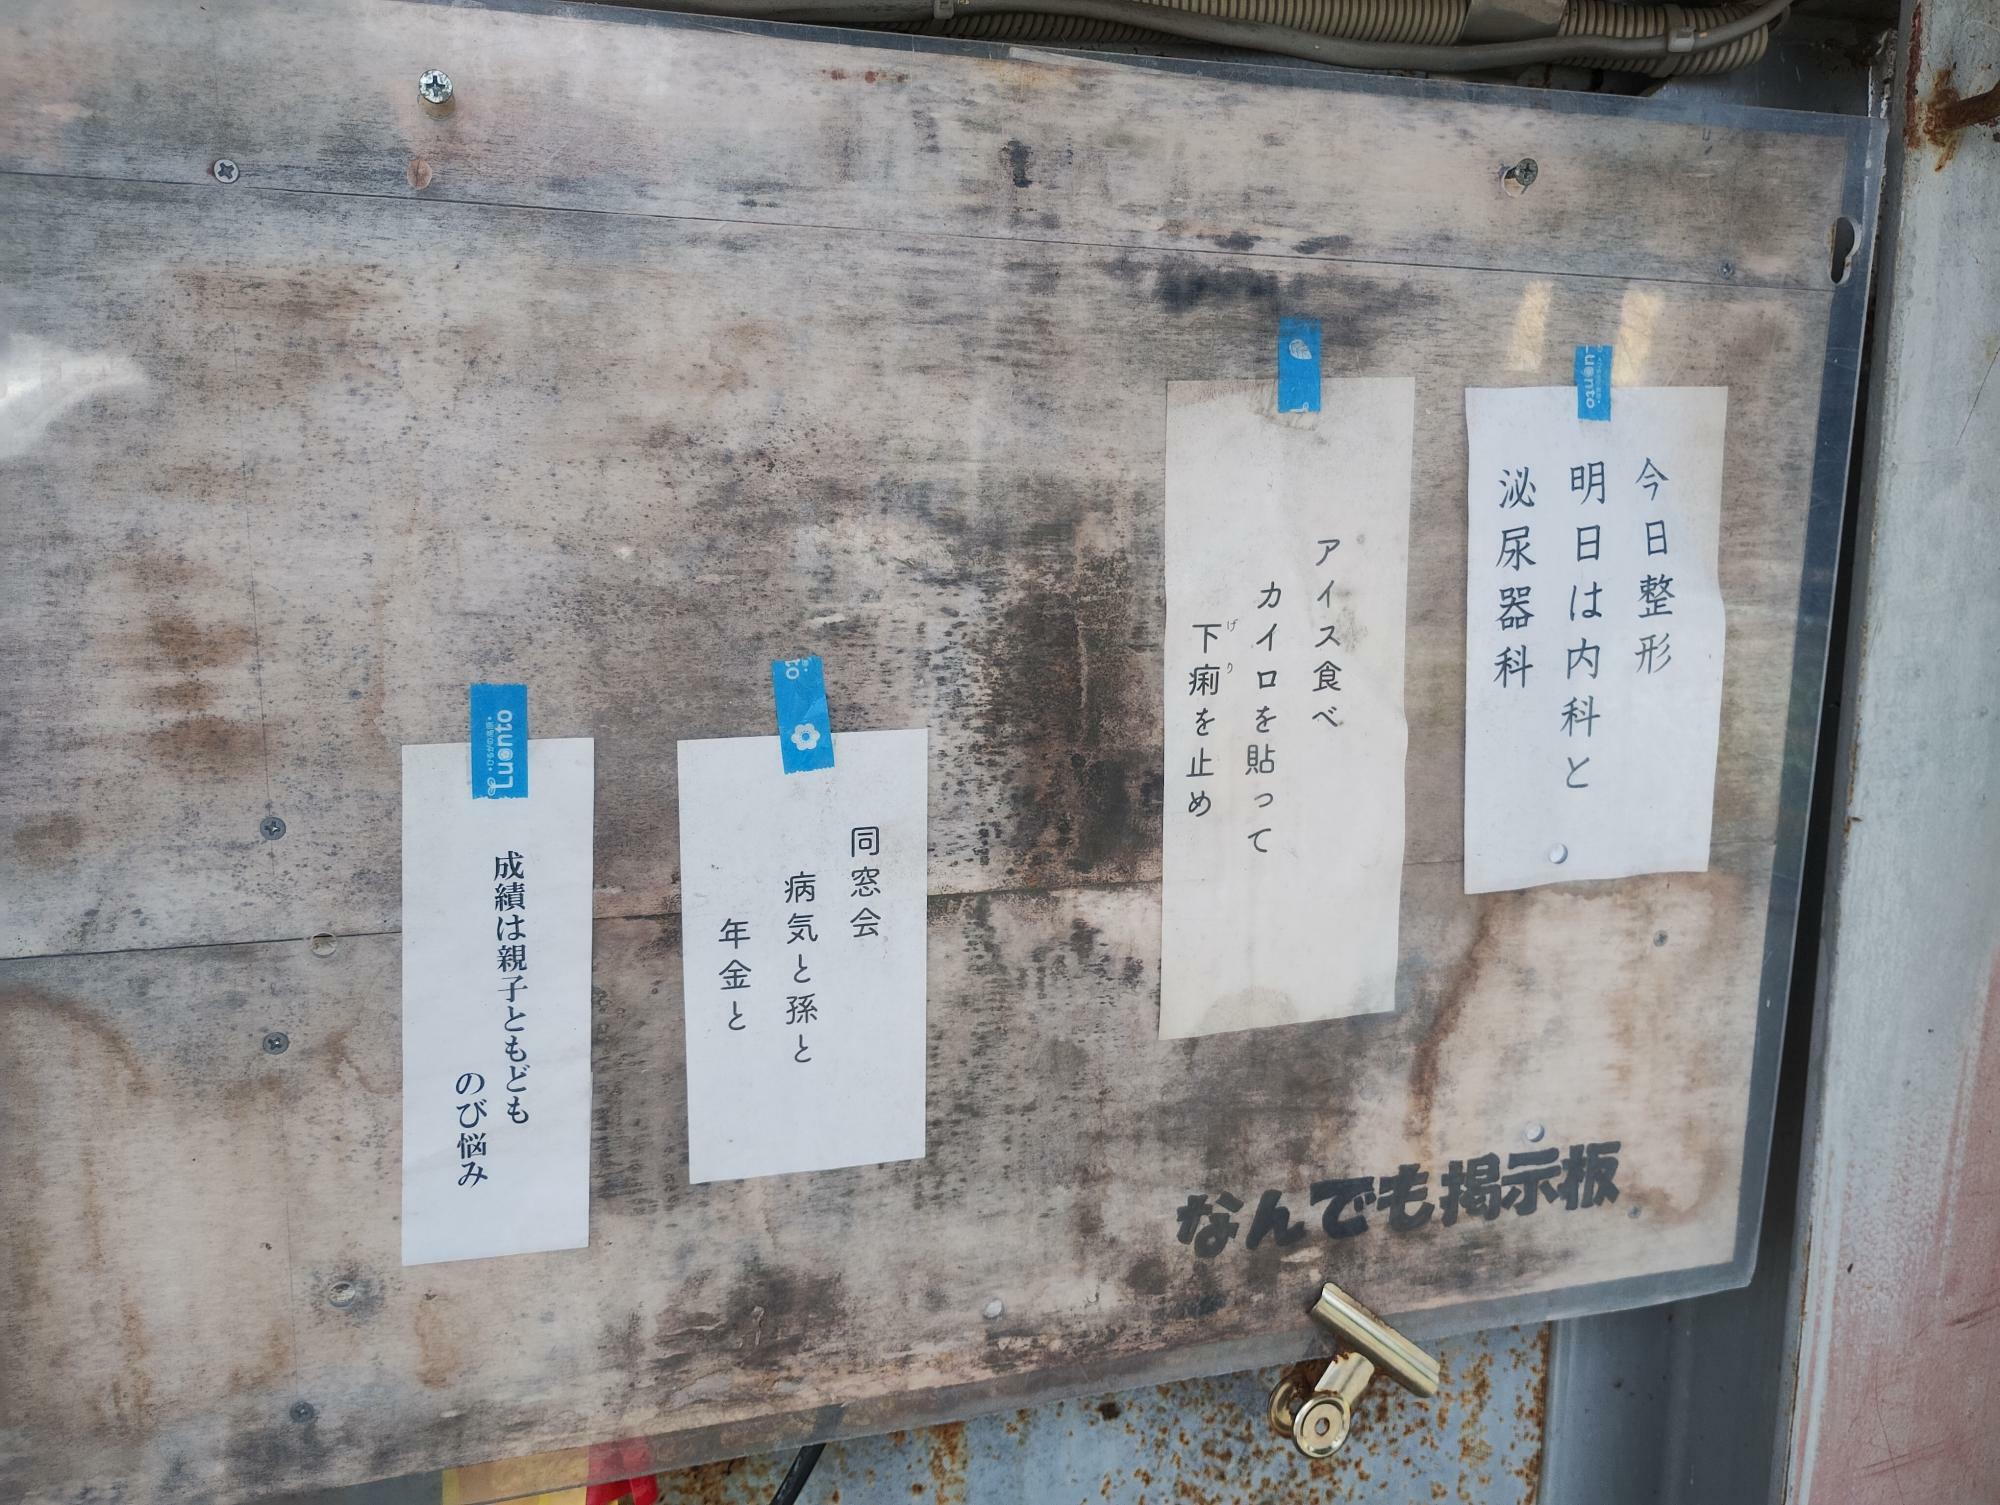 今日整形
明日は内科と
泌尿器科
アイス食べ
カイロを貼って
下痢を止め
げり
同窓会
病気と孫と
年金と
成績は親子ともども
のび悩み
なんでも掲示板
Luonto
uonto